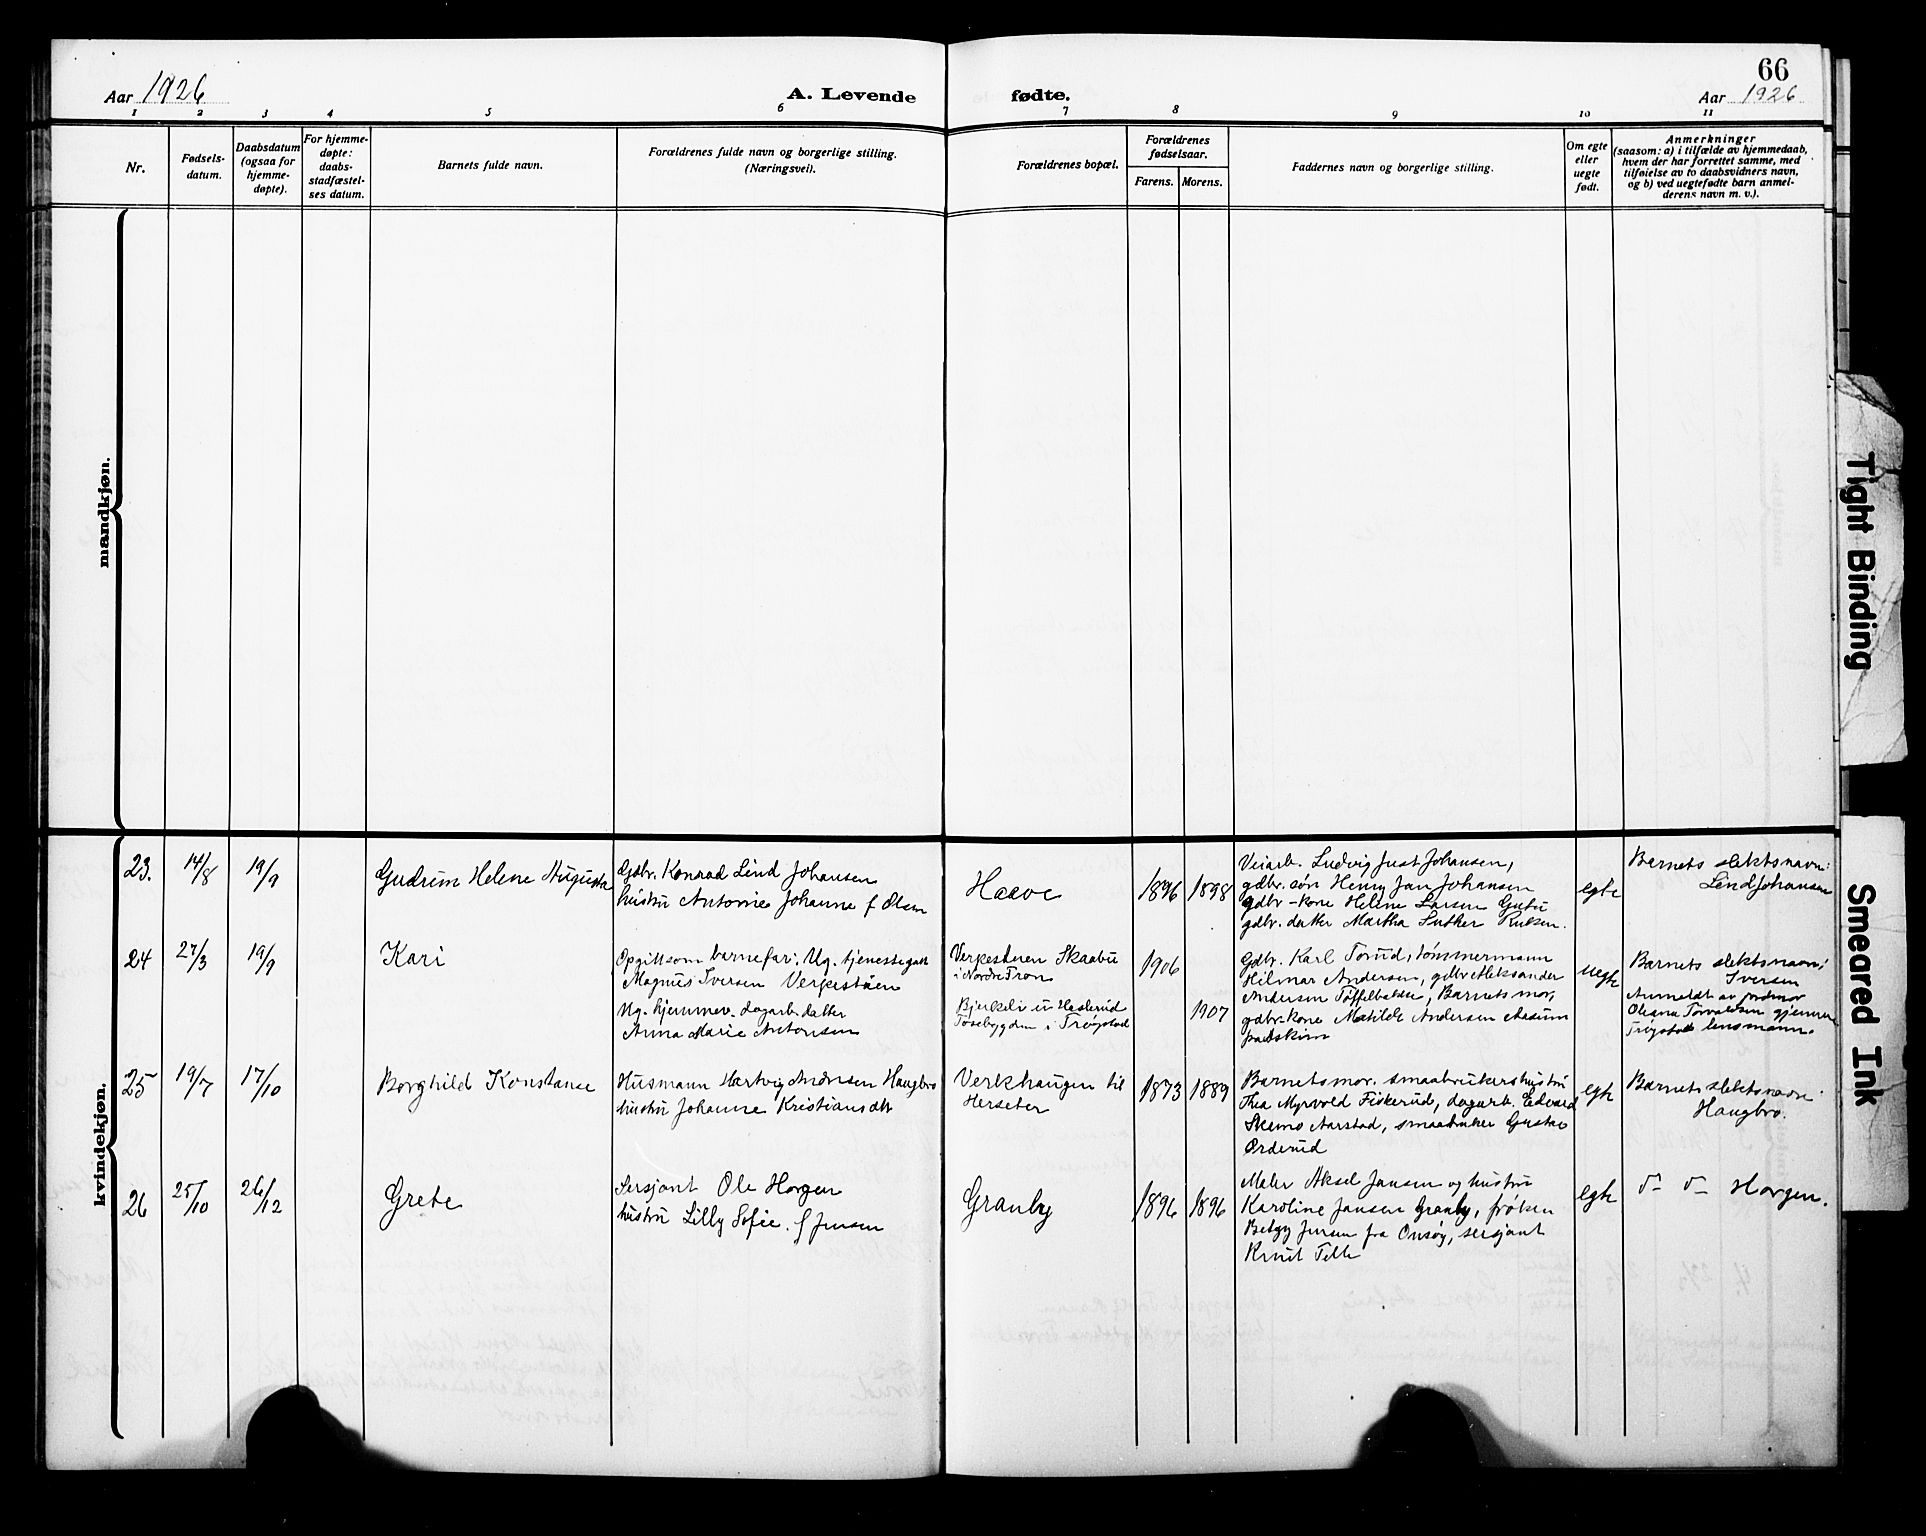 66
Aar 1926
A. Levende
fødte.
Aar 1926
1 2 3 4 5 6 7 8 9 10 11
Nr.
Fødsels-
datum.
Daabsdatum
(ogsaa for
hjemme-
døpte).
For hjemme-
døpte:
daabs-
stadfæstel-
ses datum.
Barnets fulde navn.
Forældrenes fulde navn og borgerlige stilling.
(Næringsvei).
Forældrenes bopæl.
Forældrenes
fødselsaar.
Farens. Morens.
Faddernes navn og borgerlige stilling.
Om egte
eller
uegte
født.
Anmerkninger
(saasom: a) i tilfælde av hjemmedaab,
hvem der har forrettet samme, med
tilføielse av to daabsvidners navn,
og b) ved uegtefødte barn anmel-
derens navn m. v.).
mandkjøn.
kvindekjøn.
23.
14/8
19/9
Gudrun Helene Augusta
Gdbr. Konrad Lind Johansen
hustru Antonie Johanne f. Olsen
Haave
1896
1898
Veiarb. Ludvig Just Johansen,
gdbr. søn Henry Jan Johansen
gdbr-kone Helene Larsen
gdbr. datter Martha Luther
egte
Barnets slektsnavn:
Lind Johansen
24
27/3
19/9
Kari
Opgitt som barnefar: Ug. tjenestegutt
Magnus Iversen Verkestuen
Ug. hjemmev. dagarb. datter
Anna Marie Antonsen
Verkestuen Skaabu
i Nordre Fron
Bjerkeli u Haslerud
i Trøgstad
1906
1907
Gdbr. Karl Torud, tømmermann
Hilmar Andersen, gdbr Aleksander
Andersen, Barnets mor,
gdbr-kone Matilde Andersen
uegte
Barnets slektsnavn:
Iversen
Anmeldt av jordmor
Olsen gjennem
Trøgstad lensmann.
25
19/7
17/10
Borghild Konstanse
Husmann Hartvig Andersen Haugbro
hustru Johanne Kristiansdtr
Verkhaugen til
Herseter
1873
1889
Barnets mor, smaabrukershustru
Thea Myrvold Fiskerud, dagarb. Edvard
Aarstad, smaabruker Gustav
Orderud
egte
Barnets slektsnavn:
Haugbro.
26
25/10
26/12
Grete
Sersjant Ole Horgen
hustru Lilly Sofie. f Jensen
Granby
1896
1896
Maler Aksel Jansen og hustru
Karoline Jansen Granby, frøken
Betzy Jensen fra Onsøy, sersjant
Knut
egte
d- d- Horgen.
Tight Binding
Smeared Ink